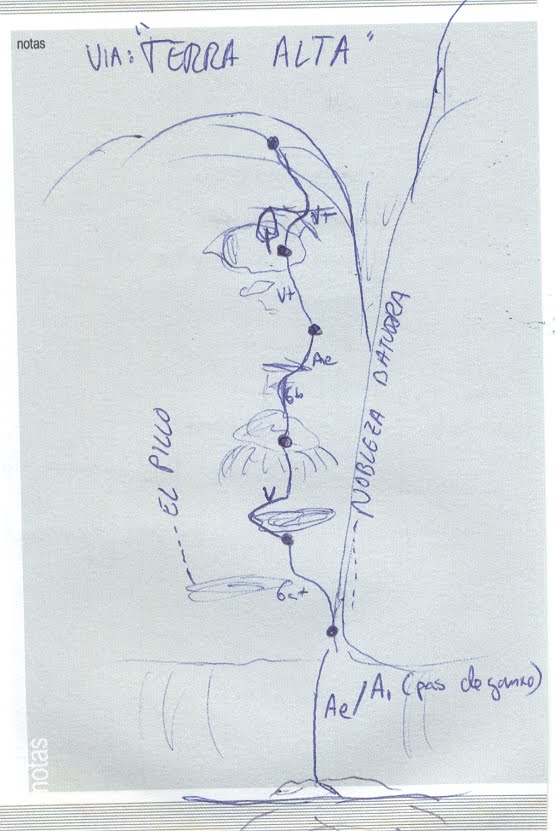 notas
VIA: "TERRA ALTA"
V+
V+
Ae
6b
V
6a+
EL PILLO
NOBLEZA BATURRA
Ae/A1 (pas de ganxo)
notas